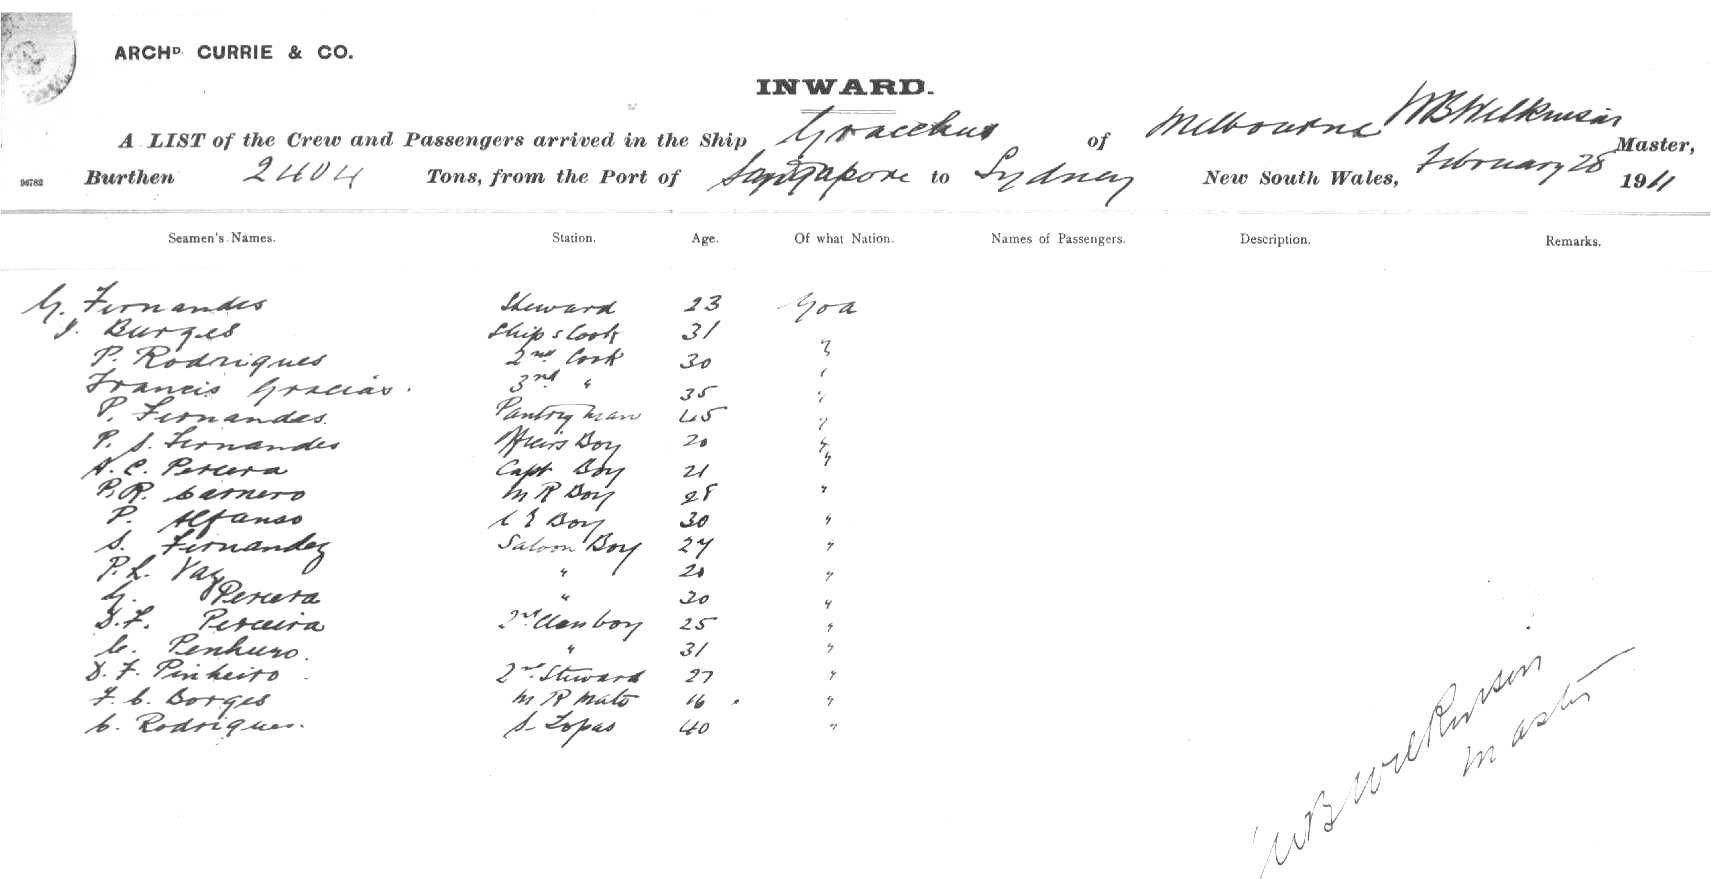 ARCHD. CURRIE & CO.
INWARD.
A LIST of the Crew and Passengers arrived in the Ship Gracchus of Melbourne WB Wilkinson Master,
96782 Burthen 2404 Tons, from the Port of Singapore to Sydney New South Wales, February 28 1911
Seamen's Names. Station. Age. Of what Nation. Names of Passengers. Description. Remarks.
G. Fernandes Steward 23 Goa
J. Burges Ships Cook 31 "
P. Rodrigues 2nd Cook 30 "
Francis Gracias. 3rd " 35 "
P. Fernandes Pantry man 45 "
P. S. Fernandes Boy 20 "
A. C. Pereira Capt Boy 21 "
P. R. Carnero M R Boy 28 "
P. Alfanso Boy 30 "
S. Fernandez Saloon Boy 27 "
P. L. Vaz " 20 "
G. Pereira " "
D. F. Pereira 2nd boy 25 "
C. " 31 "
D. F. Pinheiro 2nd Steward 27 "
F. C. Borges M R Mate 16 "
C. Rodrigues. S. Topas 40 "
WB Wilkinson
Master